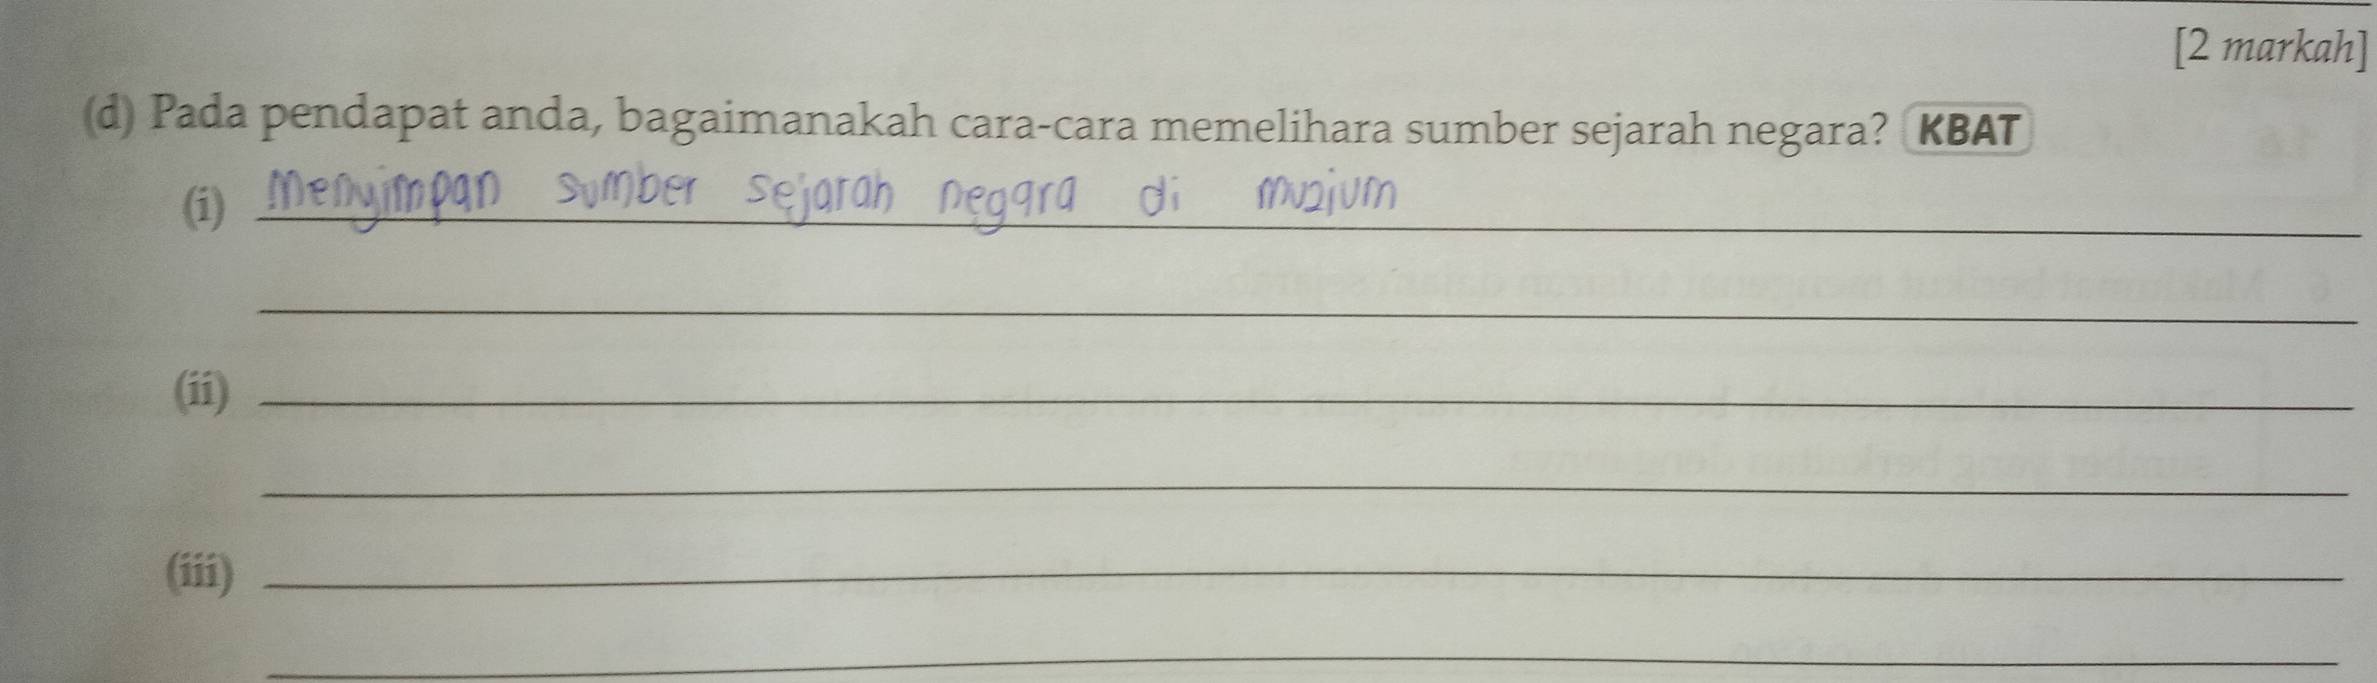 [2 markah]
(d) Pada pendapat anda, bagaimanakah cara-cara memelihara sumber sejarah negara? KBAT
(i) Menyimpan sumber sejarah negara di muzium
(ii)
(iii)